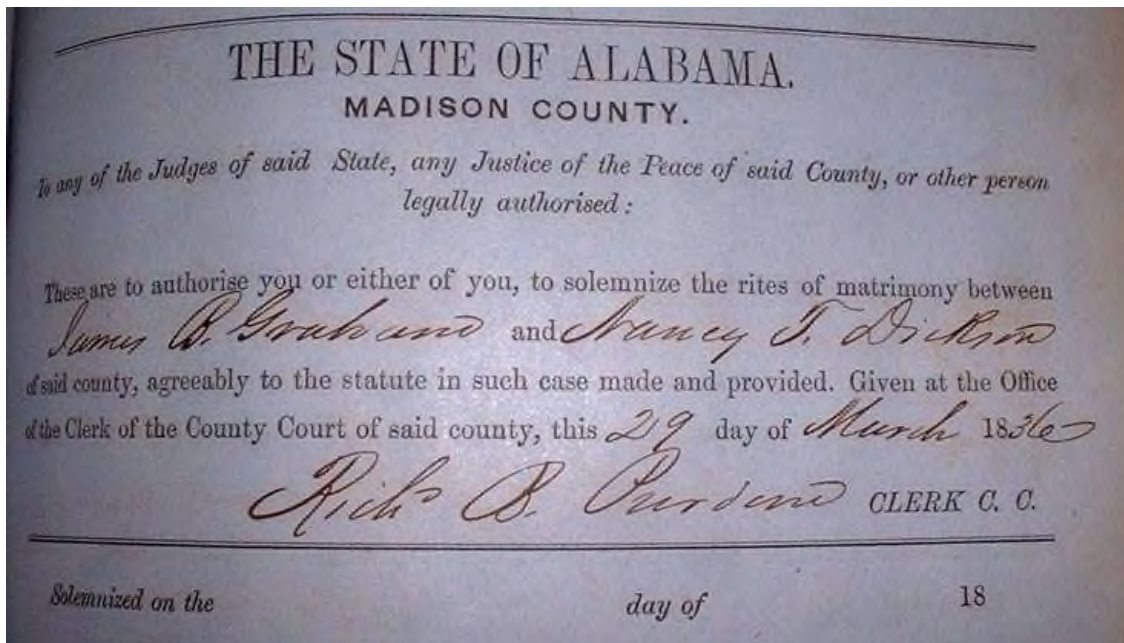 THE STATE OF ALABAMA.
MADISON COUNTY.
To any of the Judges of said State, any Justice of the Peace of said County, or other person
legally authorised:
These are to authorise you or either of you, to solemnize the rites of matrimony between
James B. Graham and Nancy T. Dickson
of said county, agreeably to the statute in such case made and provided. Given at the Office
of the Clerk of the County Court of said county, this 29 day of March 1836
Richd B. Purdom CLERK C. C.
Solemnized on the day of 18